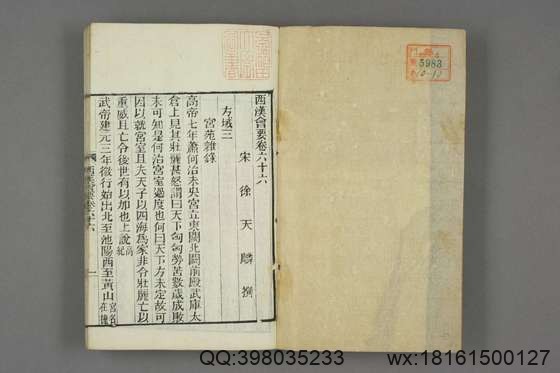 西漢會要卷六十六
宋徐天麟撰
方域三
宮苑雜錄
高帝七年蕭何治未央宮立東闕北闕前殿武庫太
倉上見其壯麗甚怒謂何曰天下匈匈勞苦數歲成敗
未可知是何治宮室過度也何曰天下方未定故可
因以就宮室且夫天子以四海爲家非令壯麗亡以
重威且亡令後世有以加也上說高紀
武帝建元三年微行始出北至池陽西至黃山宮名在槐
5983
10-12
QQ:398035233
wx:18161500127